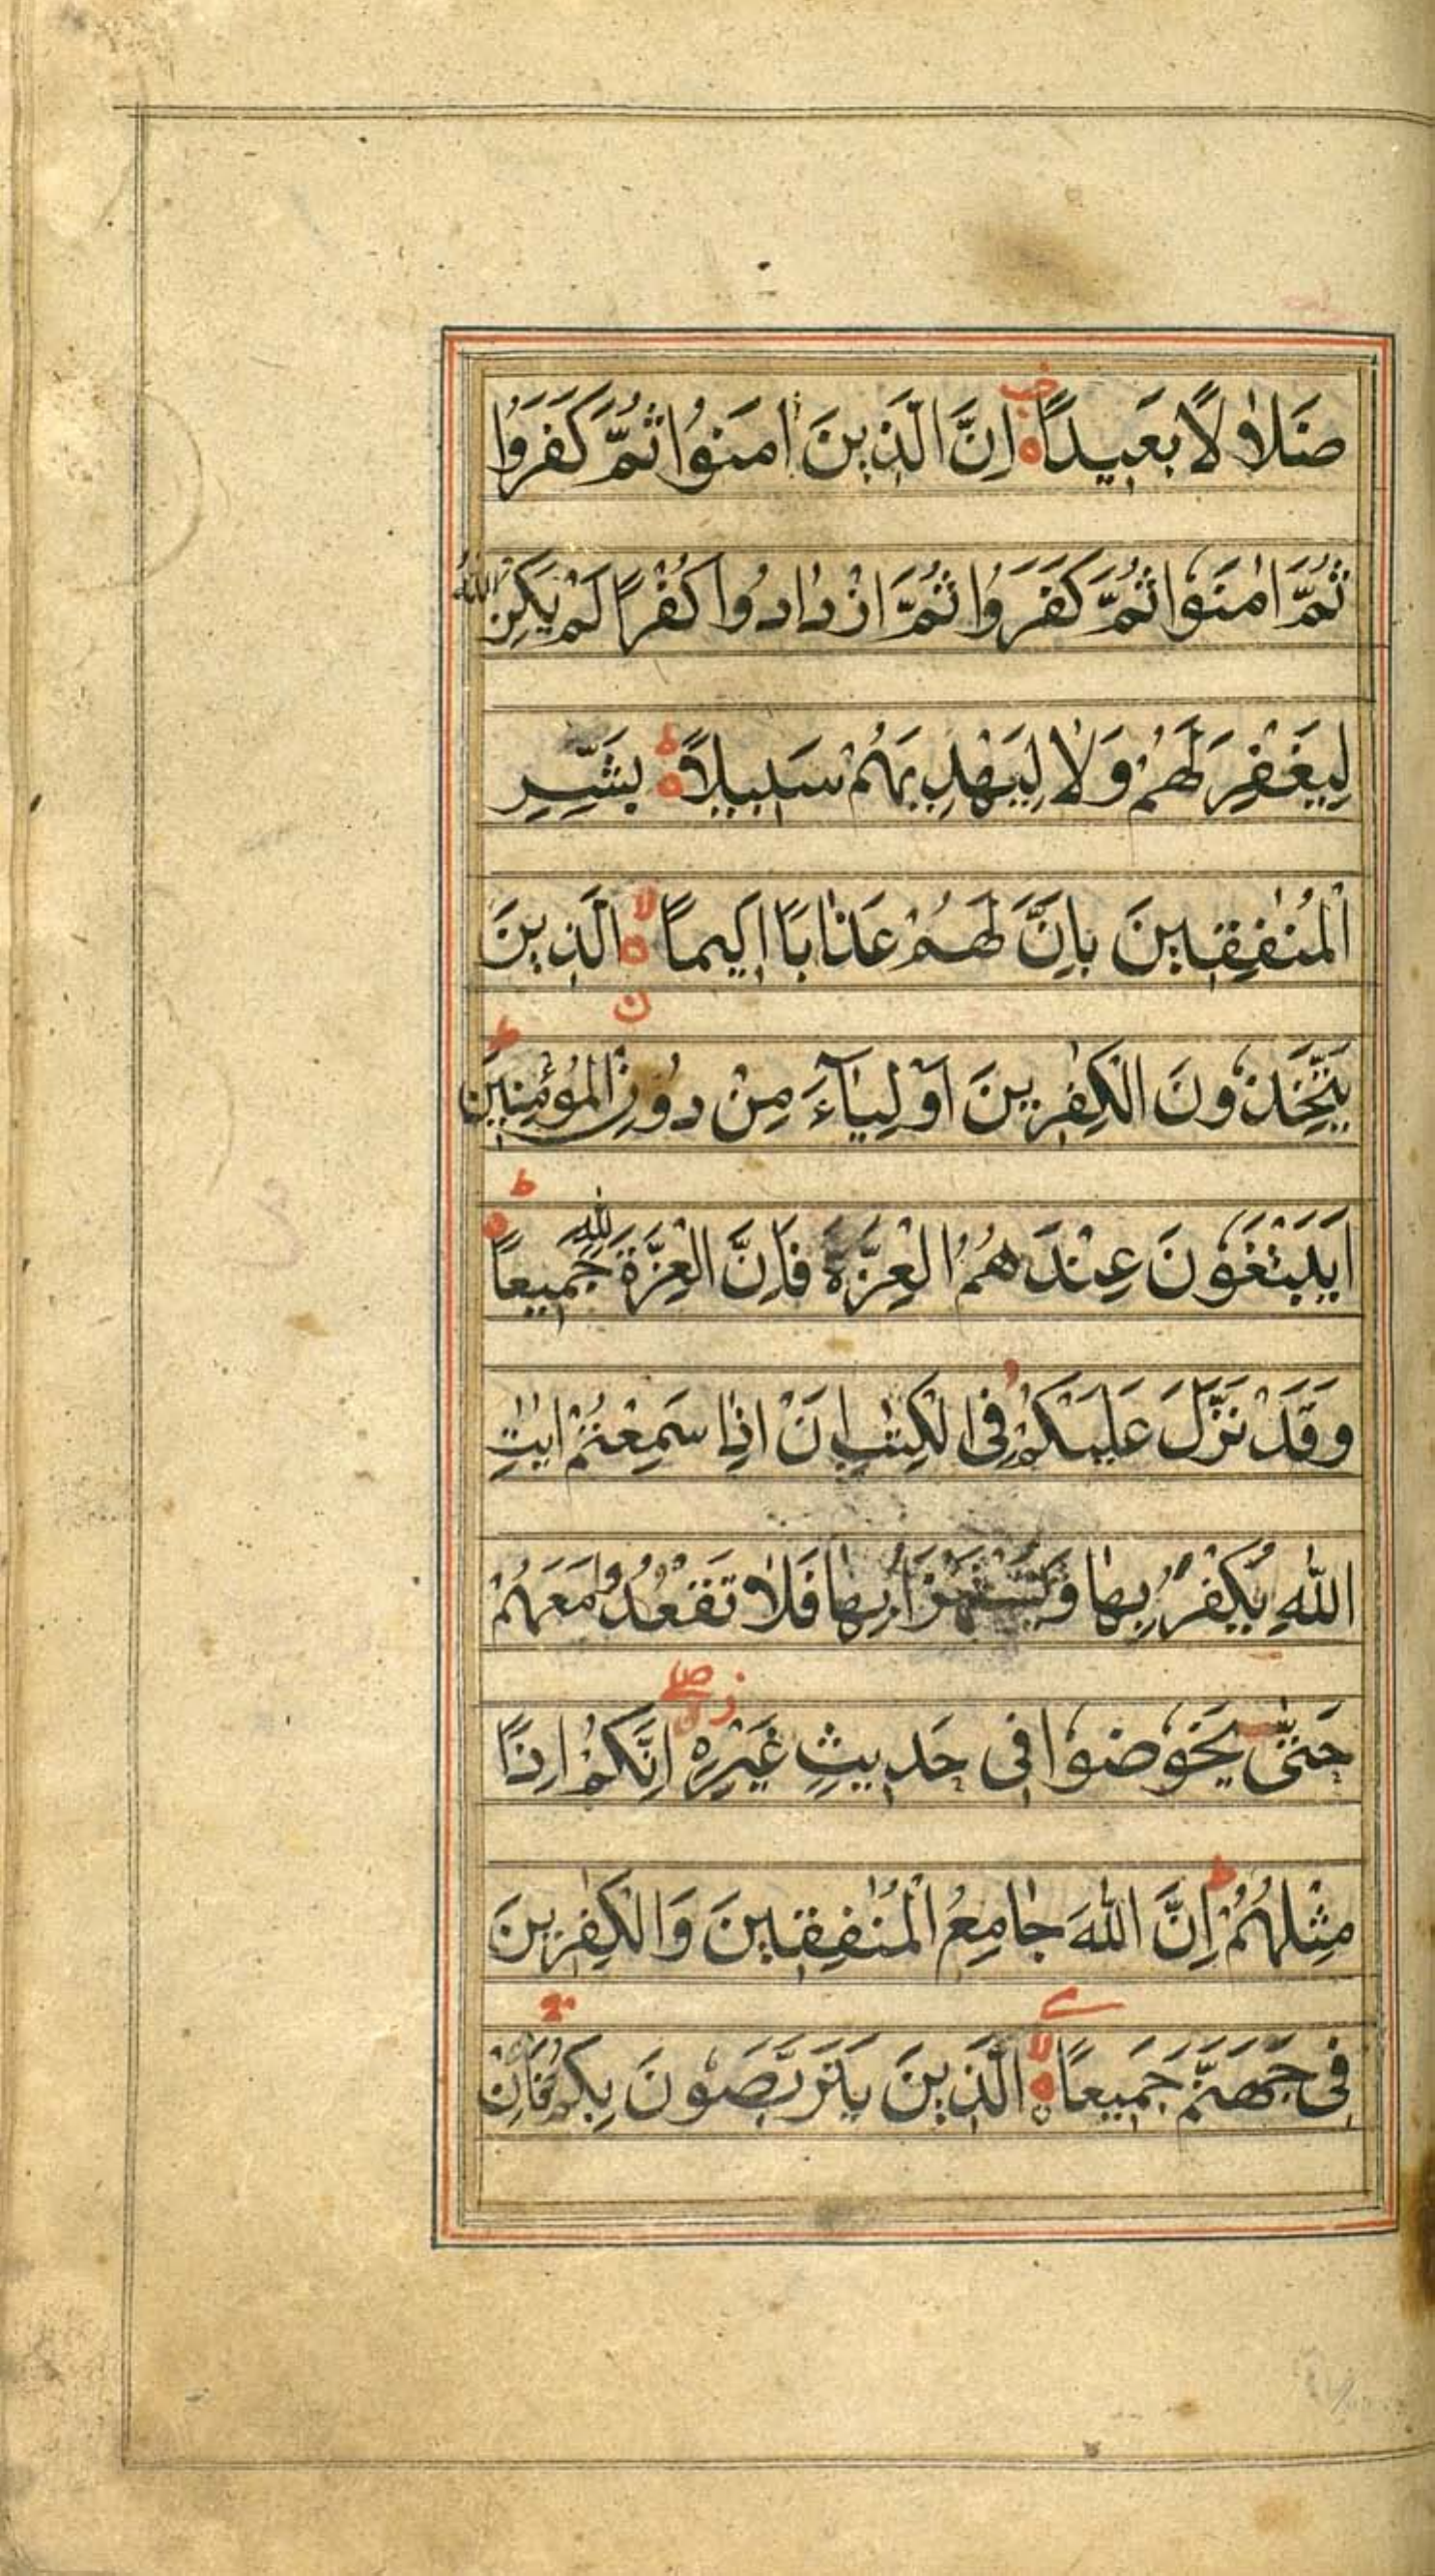 ضَلٰلًا بَعِيدًا ه اِنَّ الَّذِينَ اٰمَنُوا ثُمَّ كَفَرُوا
ثُمَّ اٰمَنُوا ثُمَّ كَفَرُوا ثُمَّ ازْدَادُوا كُفْرًا لَمْ يَكُنِ اللّٰهُ
لِيَغْفِرَ لَهُمْ وَلَا لِيَهْدِيَهُمْ سَبِيلًا ه بَشِّرِ
الْمُنٰفِقِينَ بِاَنَّ لَهُمْ عَذَابًا اَلِيمًا ه الَّذِينَ
يَتَّخِذُونَ الْكٰفِرِينَ اَوْلِيَآءَ مِنْ دُونِ الْمُؤْمِنِينَ ط
اَيَبْتَغُونَ عِنْدَهُمُ الْعِزَّةَ فَاِنَّ الْعِزَّةَ لِلّٰهِ جَمِيعًا ه ط
وَقَدْ نَزَّلَ عَلَيْكُمْ فِى الْكِتٰبِ اَنْ اِذَا سَمِعْتُمْ اٰيٰتِ
اللّٰهِ يُكْفَرُ بِهَا وَيُسْتَهْزَاُ بِهَا فَلَا تَقْعُدُوا مَعَهُمْ
حَتّٰى يَخُوضُوا فِى حَدِيثٍ غَيْرِهٖ اِنَّكُمْ اِذًا
مِثْلُهُمْ ط اِنَّ اللّٰهَ جَامِعُ الْمُنٰفِقِينَ وَالْكٰفِرِينَ
فِى جَهَنَّمَ جَمِيعًا ه لا الَّذِينَ يَتَرَبَّصُونَ بِكُمْ فَاِنْ